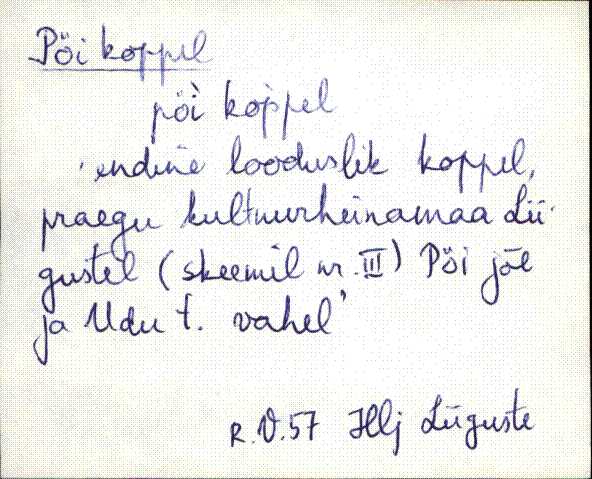 Pöi koppel
pöì kop̀pel
'endine looduslik koppel,
praegu kultuurheinamaa Lii-
gustel (skeemil nr. III) Pöi jõe
ja Udu t. vahel'
R.V.57 Hlj Liiguste